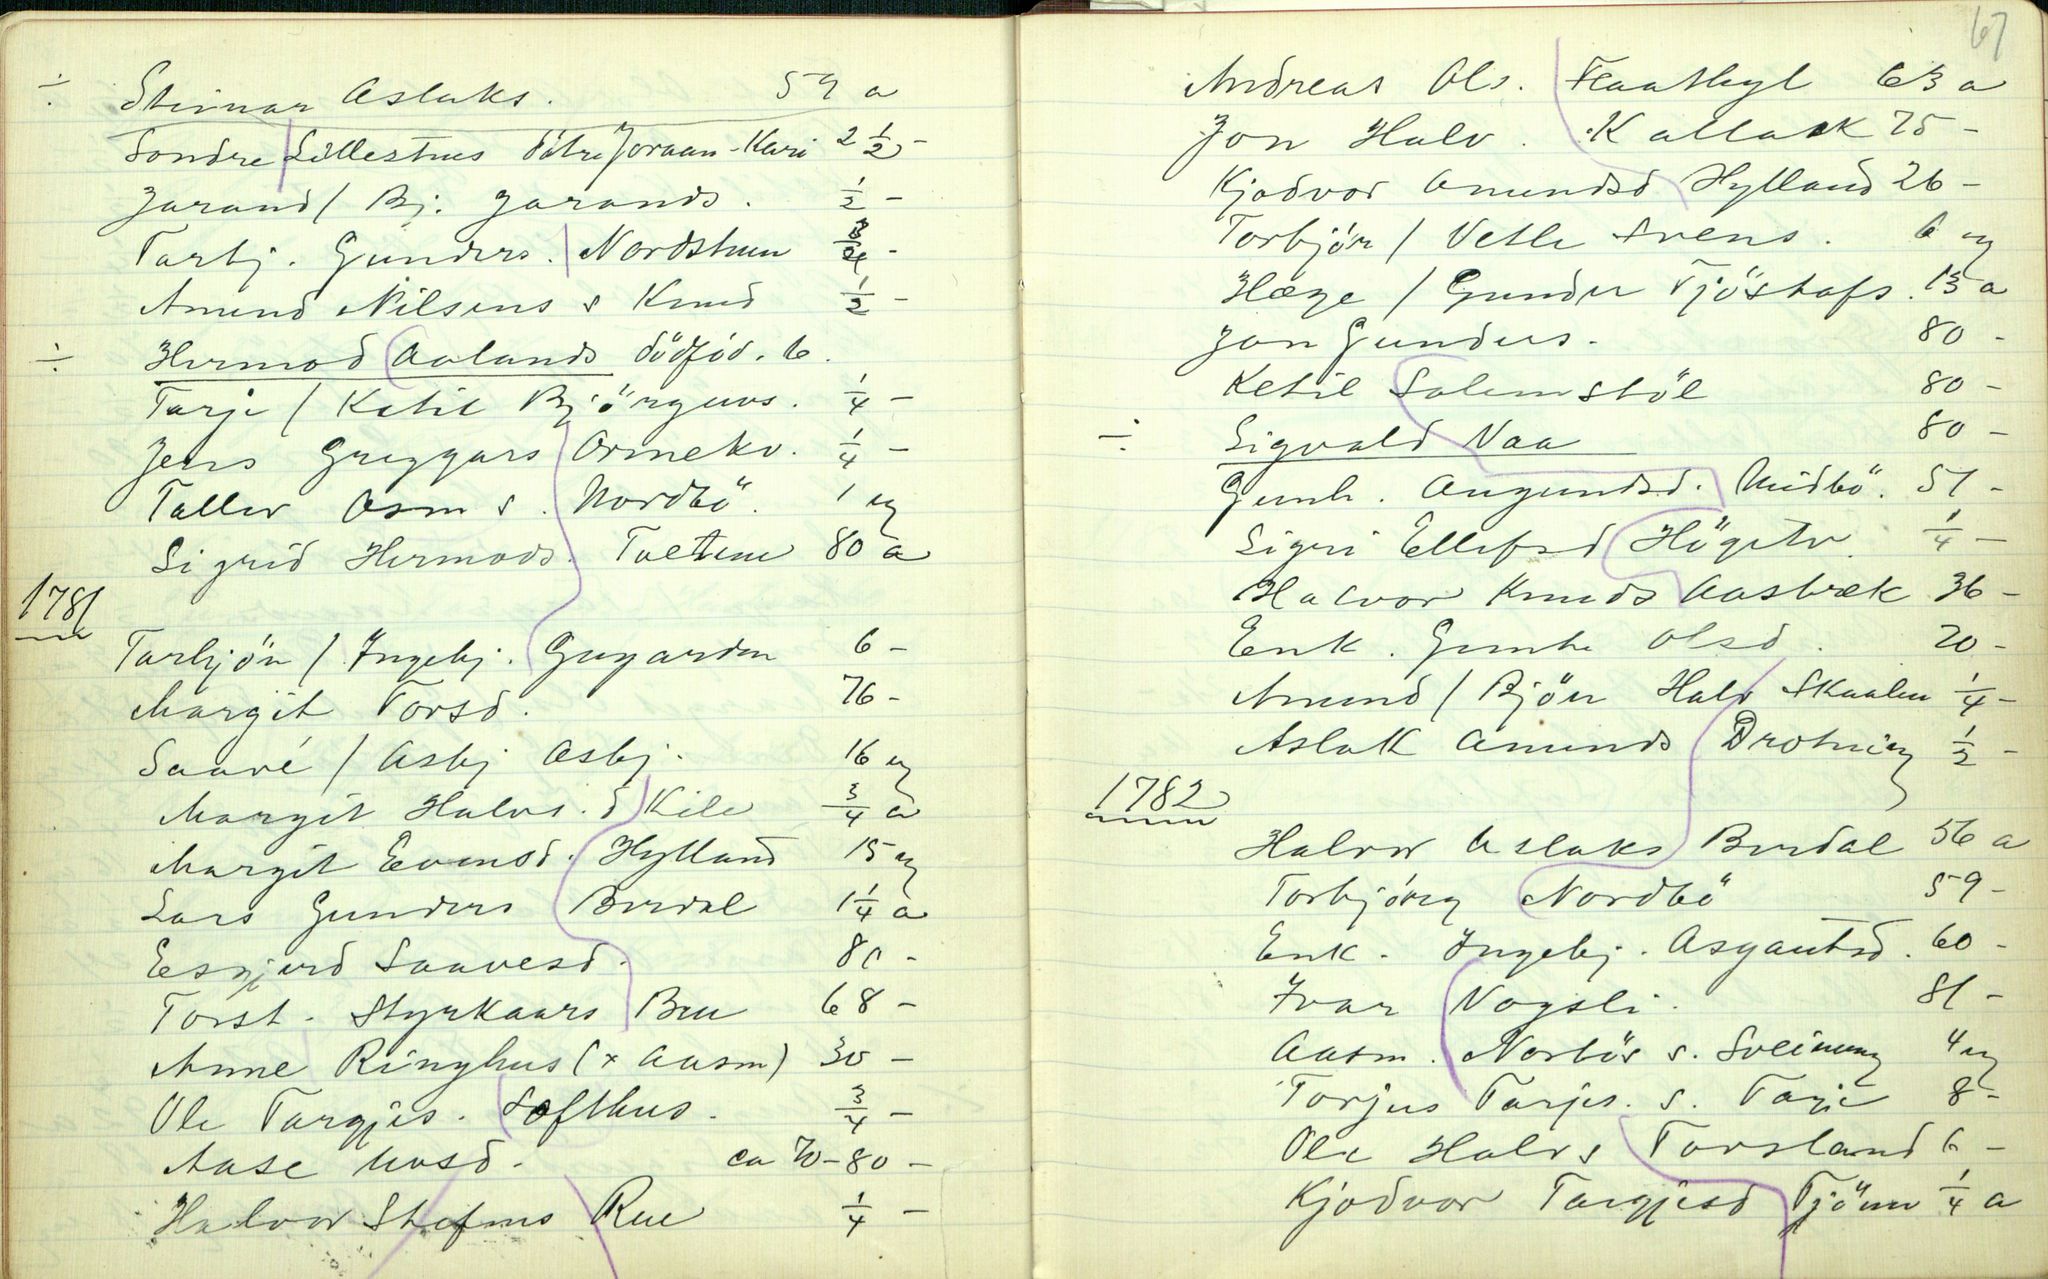 ÷ Steinar Aslaks. 59 a
Sondre Lillesthus dötre Joraan - Kari 2 1/2 -
Jarand / Bj. Jarands. 1/2 -
Tarbj. Gunders. Nordstuen
Amund Nilsens s Knud 1/2 -
÷ Hermod Aalands dödföd. b.
Tarje / Ketil Björguvs. 1/4 -
Jens Greggars Ormekv. 1/4 -
Tallev Asm s. Nordbö. 1 ug
Sigrid Hermods. Tveitene 80 a
1781
Tarbjön / Ingebj. Gugarden 6 -
Margit Torsd. 76 -
Saavé / Asbj Asbj. 16 ug
Margit Halvs. d Kile 3/4 a
Margit Evensd. Hylland 15 ug
Lars Gunders Berdal 1 1/4 a
Esgjerd Saavesd. 80 -
Torst. Styrkaars Bru 68 -
Anne Ringhus (x Aasm) 30 -
Ole Targjes. Lofthus. 3/4 -
Aase Uvsd. ca 70-80 -
Halvor Stefens Rue 1/4 -
67
Andreas Ols. Flaathyl 63 a
Jon Halv. Kallaak 75 -
Kjodvor Amundsd Hylland 26 -
Torbjör / Vetle Svens. 6 ug
Hæge / Gunder Tjöstafs. 13 a
Jon Gunders. 80 -
Ketil Solemstöl 80 -
÷ Sigvald Naa 80 -
Gunh. Augundsd. Midbö. 51 -
Sigri Ellefsd Högetv. 1/4 -
Halvor Knuds Aasbræk 36 -
Enk. Gunh. Olsd. 70 -
Amund / Björn Halv Skaalen 1/4 -
Aslak Amunds Drotning 1/2 -
1782
Halvor Aslaks Berdal 56 a
Torbjörg Nordbö 59 -
Enk. Ingebj. Asgautsd. 60 -
Ivar Vagsli. 81 -
Aasm. Norbös s. Sveinung 4 ug
Torjus Tarjes. s. Tarje 8 -
Ole Halvs Torsland 6 -
Kjodvor Targjesd Tjönn 1/4 a